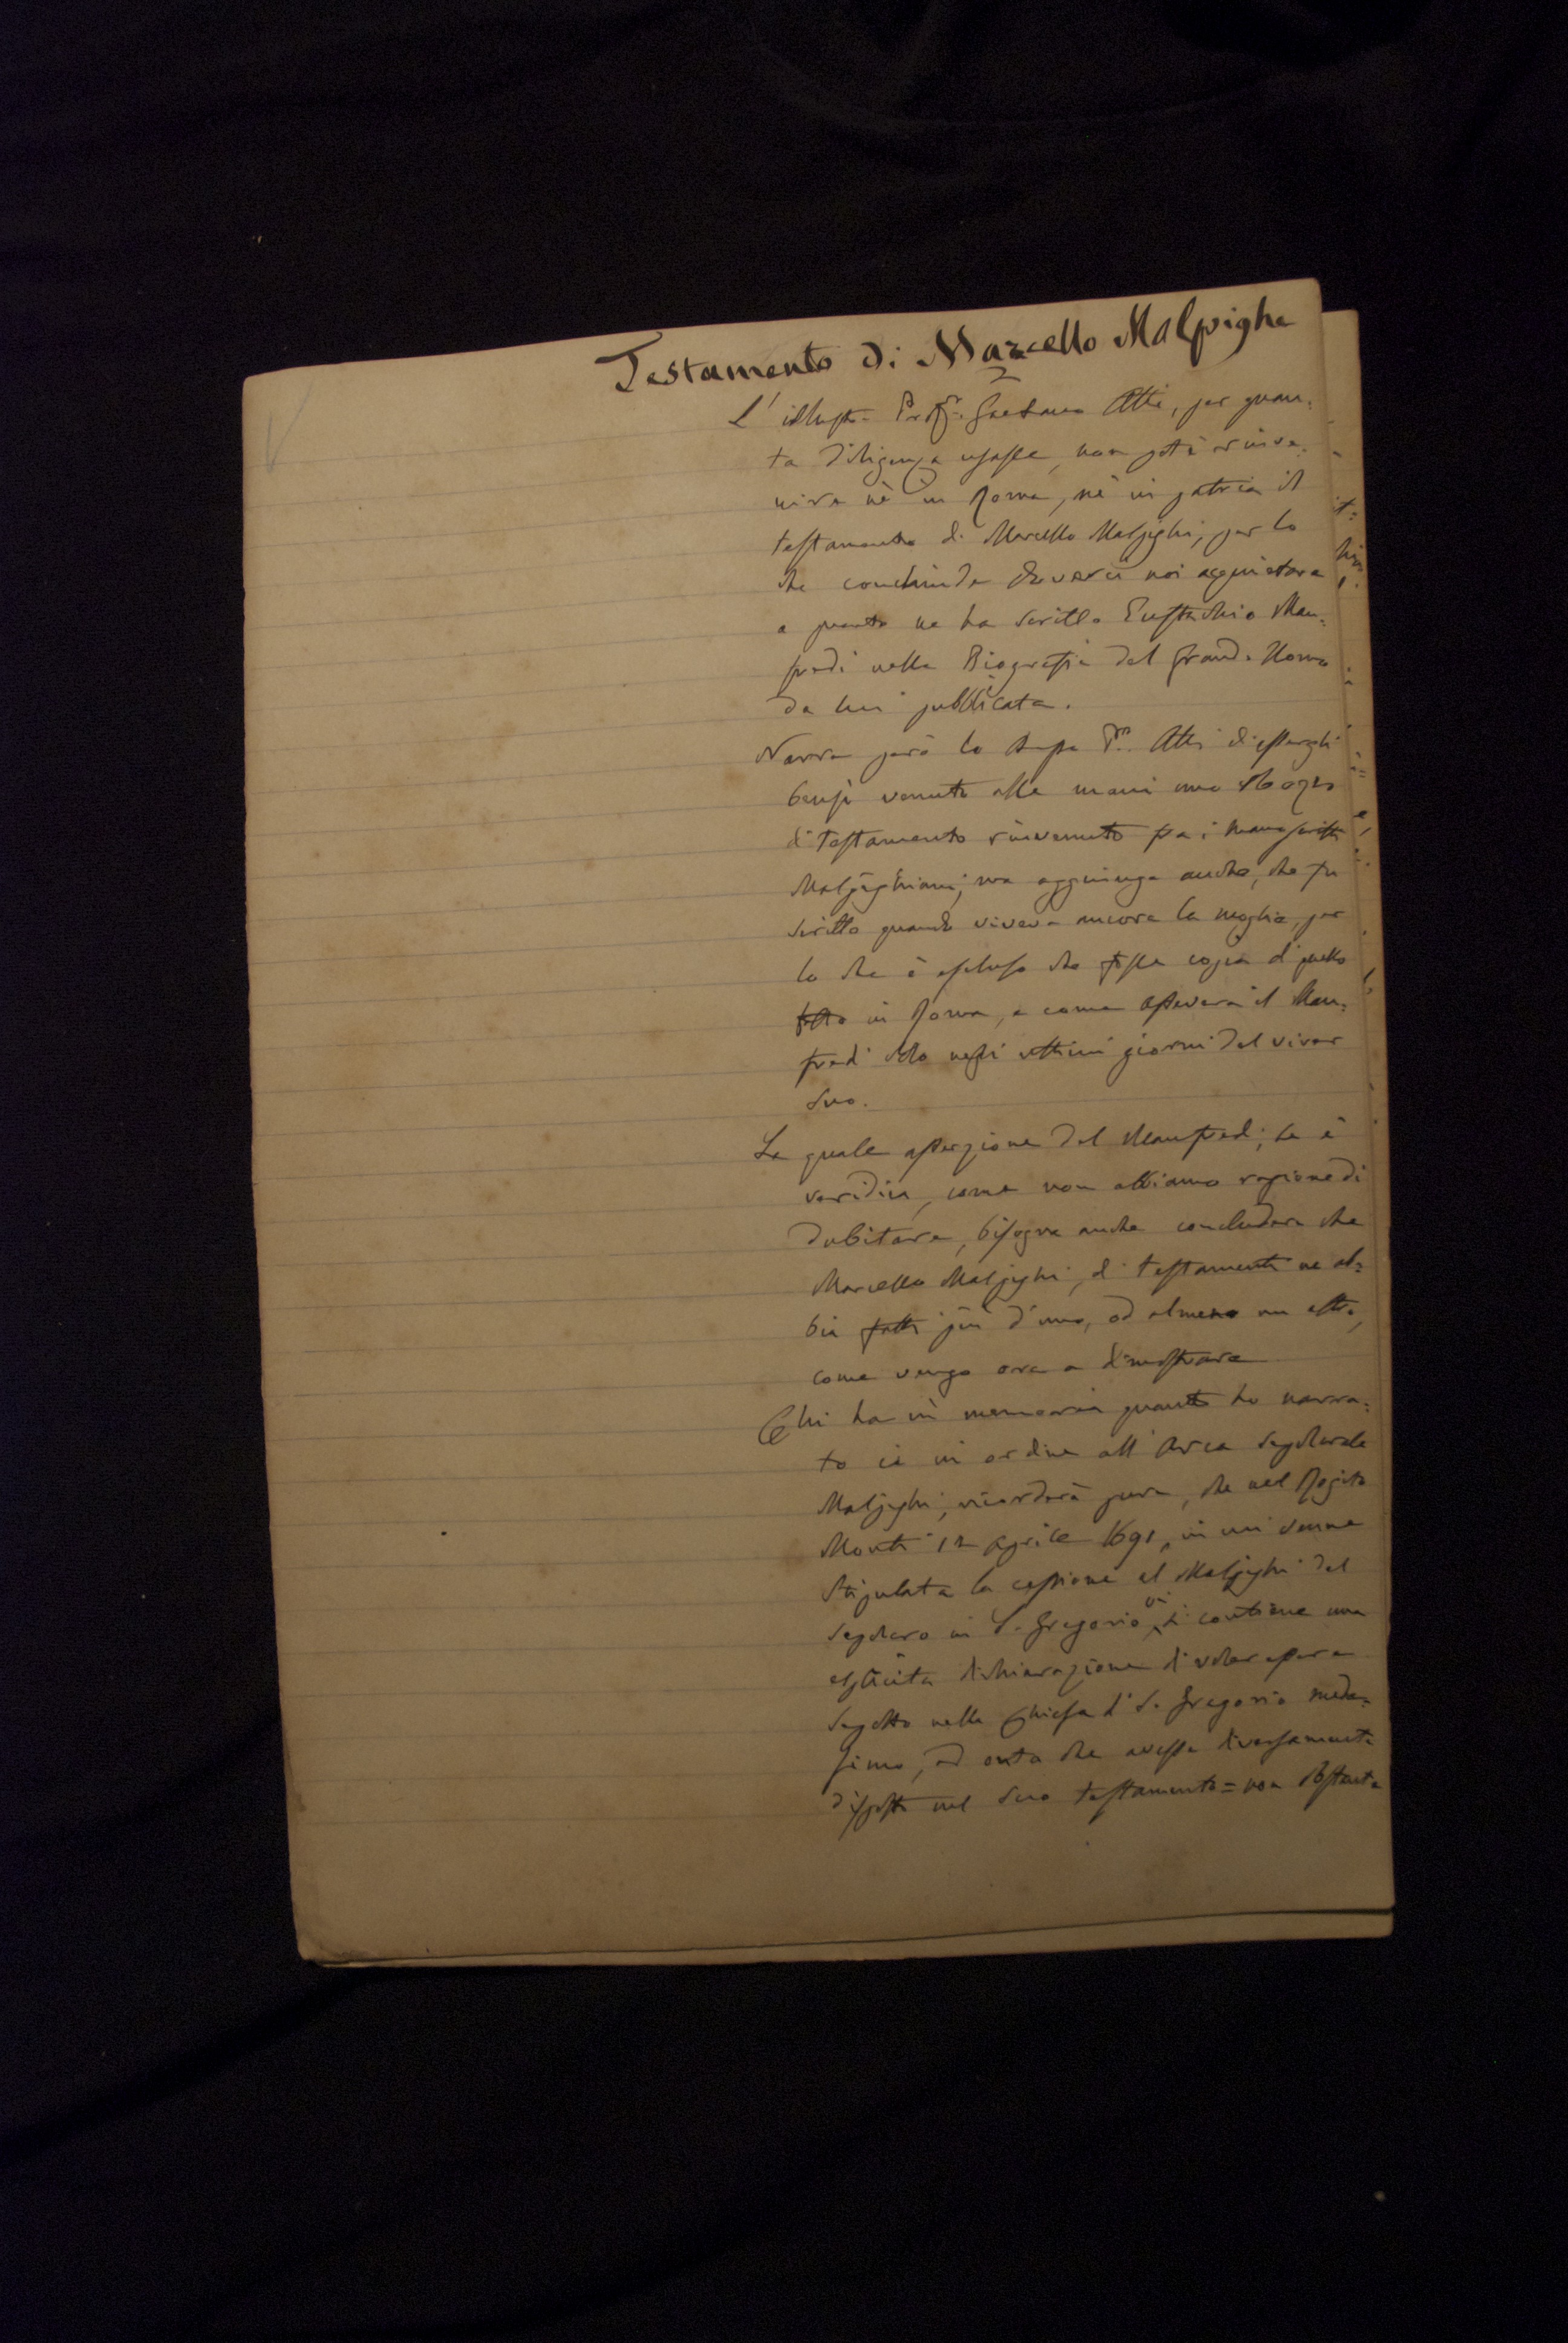 Testamento di Marcello Malpighi
L' illustr. Prof.r Gaetano Atti, per quan=
ta diligenza usasse, non potè rinve=
nire nè in Roma, nè in patria il
testamento di Marcello Malpighi, per lo
che conchiude doverci noi acquietare
a quanto ne ha scritto Eustachio Man=
fredi nella Biografia del grande Uomo
da lui pubblicata.
Narra però lo stesso Pr. Atti d'essergli
bensì venuto alle mani uno sbozzo
di testamento rinvenuto fra i manoscritti
Malpighiani; ma aggiunge anche, che fu
scritto quando viveva ancora la moglie, per
lo che è escluso che fosse copia di quello
fatto in Roma, e come asseverа il Man=
fredi solo negli ultimi giorni del viver
suo.
La quale asserzione del Manfredi, se è
veridica, come non abbiamo ragione di
dubitare, bisogna anche concludere che
Marcello Malpighi, di testamenti ne ab=
bia fatti più d'uno, od almeno un altro,
come vengo ora a dimostrare
Chi ha in memoria quanto ho narra=
to in ordine all' Arca Sepolcrale
Malpighi, ricorderà pure, che nel Rogito
Monti 12 Aprile 1691, in cui venne
stipulata la cessione al Malpighi del
sepolcro in S. Gregorio vi si contiene una
esplicita dichiarazione di voler essere
sepolto nella Chiesa di S. Gregorio mede=
simo, ad onta che avesse diversamente
disposto nel suo testamento = non ostante